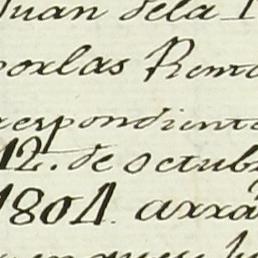 Juan dela
porlas Rent
respondiente
12. de octub
1804. arra